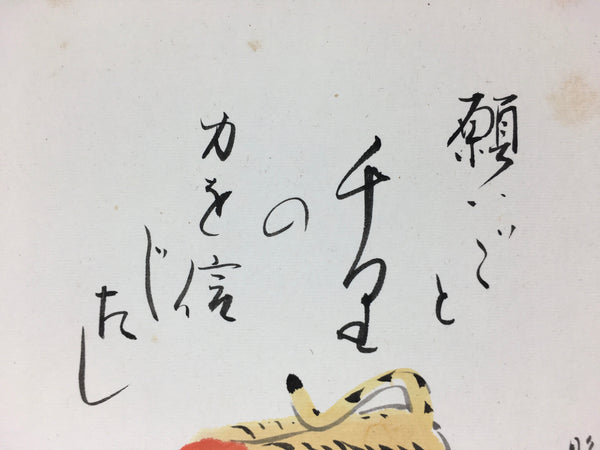 願いごと
千里
の
力を信
じ
たし